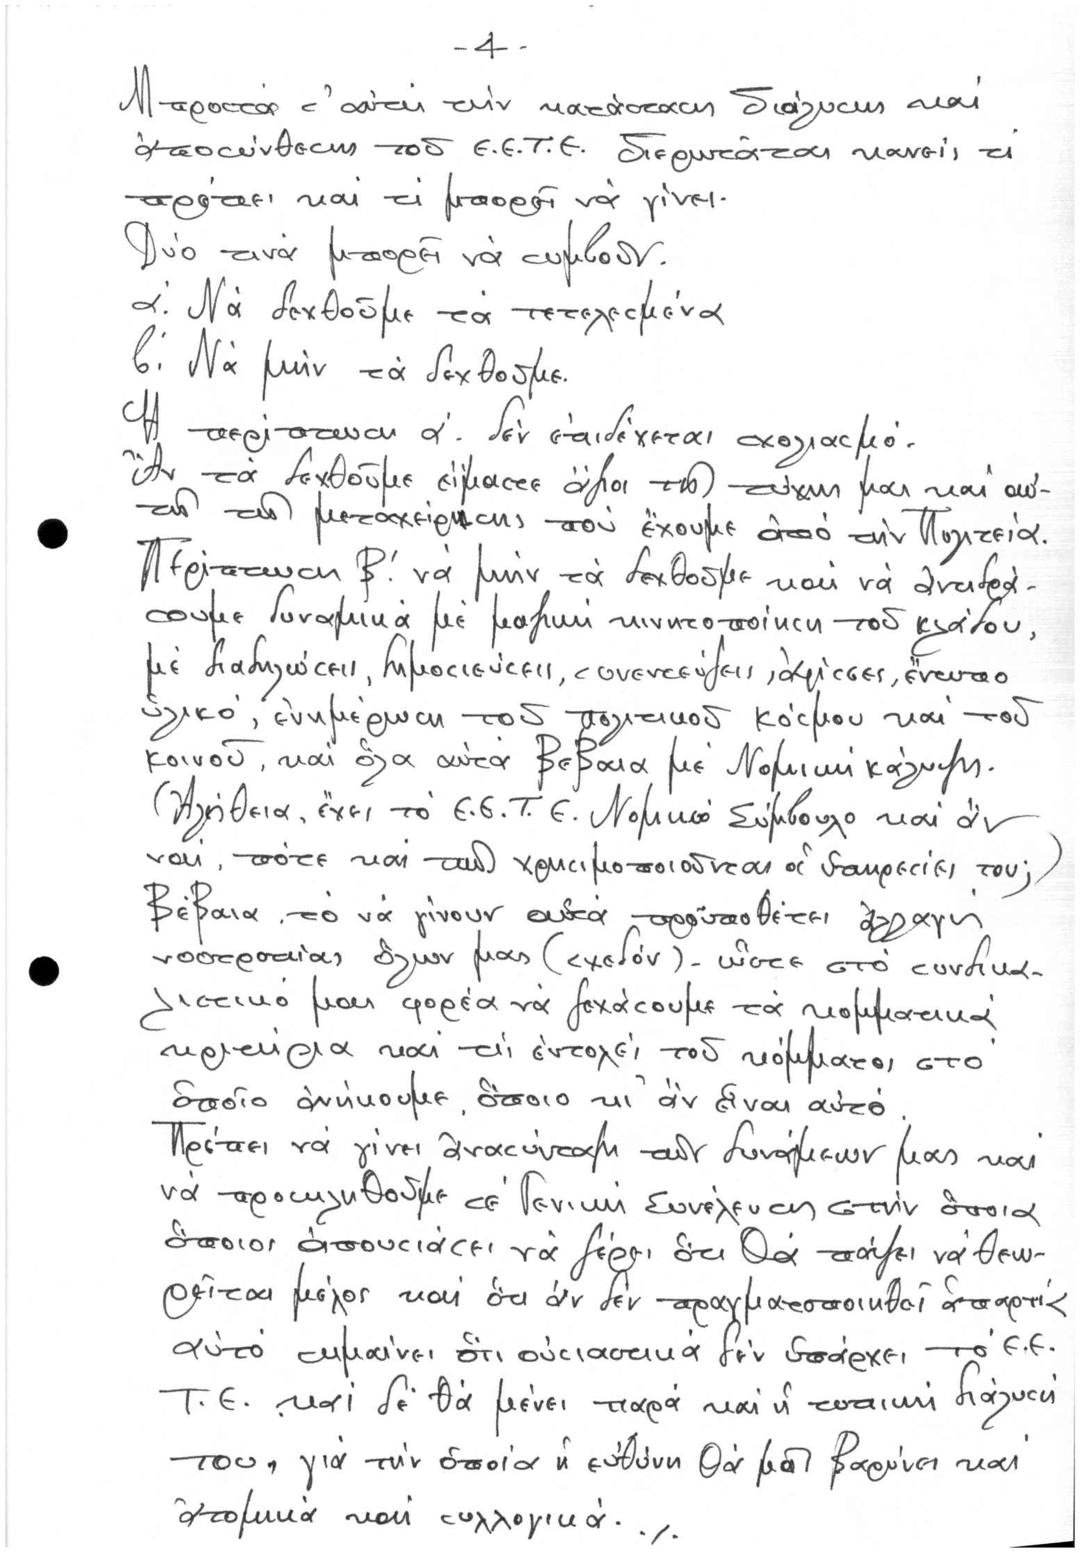 - 4 -
Μπροστά σ' αὐτή τήν κατάσταση διάλυσης καί
ἀποσύνθεσης τοῦ Ε.Ε.Τ.Ε. διερωτᾶται κανείς τί
πρέπει καί τί μπορεῖ νά γίνει.
Δύο τινά μπορεῖ νά συμβοῦν.
α'. Νά δεχθοῦμε τά τετελεσμένα
β'. Νά μήν τά δεχθοῦμε.
Ἡ περίπτωση α'. δέν ἐπιδέχεται σχολιασμό.
Ἄν τά δεχθοῦμε εἴμαστε ἄξιοι τῆς τύχης μας καί αὐ-
τῆς τῆς μεταχείρησης πού ἔχουμε ἀπό τήν Πολιτεία.
Περίπτωση β'. νά μήν τά δεχθοῦμε καί νά ἀντιδρά-
σουμε δυναμικά μέ μαζική κινητοποίηση τοῦ κλάδου,
μέ διαδηλώσεις, δημοσιεύσεις, συνεντεύξεις, ἀφίσσες, ἔντυπο
ὑλικό, ἐνημέρωση τοῦ πολιτικοῦ κόσμου καί τοῦ
κοινοῦ, καί ὅλα αὐτά βέβαια μέ Νομική κάλυψη.
(Ἀλήθεια, ἔχει τό Ε.Ε.Τ.Ε. Νομικό Σύμβουλο καί ἄν
ναί, πότε καί πῶς χρησιμοποιοῦνται οἱ ὑπηρεσίες του;)
Βέβαια, τό νά γίνουν αὐτά προϋποθέτει ἀλλαγή
νοοτροπίας ὅλων μας (σχεδόν) - ὥστε στό συνδικα-
λιστικό μας φορέα νά ξεχάσουμε τά κομματικά
κριτήρια καί τίς ἐντολές τοῦ κόμματος στό
ὁποῖο ἀνήκουμε, ὅποιο κι' ἄν εἶναι αὐτό.
Πρέπει νά γίνει ἀνασύνταξη τῶν δυνάμεων μας καί
νά προσκληθοῦμε σέ Γενική Συνέλευση στήν ὁποία
ὅποιος ἀπουσιάσει νά ξέρει ὅτι θά πάψει νά θεω-
ρεῖται μέλος καί ὅτι ἄν δέν πραγματοποιηθεῖ ἀπαρτία
αὐτό σημαίνει ὅτι οὐσιαστικά δέν ὑπάρχει τό Ε.Ε.
Τ.Ε. καί δέ θά μένει παρά καί ἡ τυπική διάλυσή
του, γιά τήν ὁποία ἡ εὐθύνη θά μᾶς βαρύνει καί
ἀτομικά καί συλλογικά. ./.